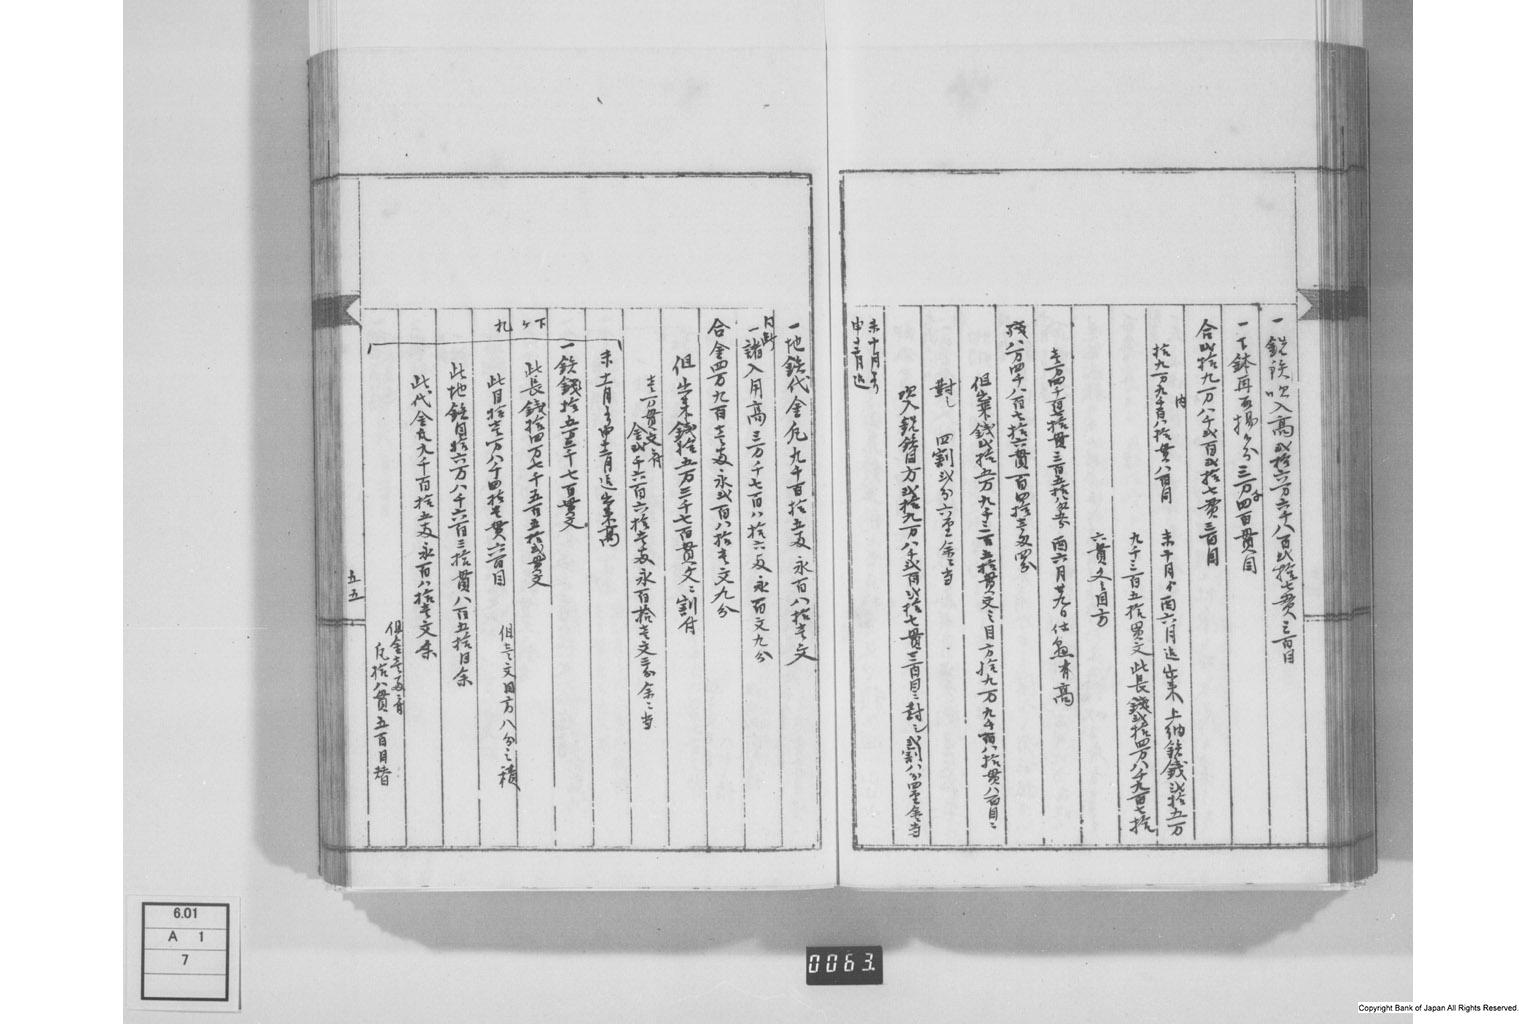 一銑鉄吹入高弐拾六万六千八百弐拾七貫三百目
一下鉢再吹揚ケ分三万千四百貫目
合弐拾九万八千弐百弐拾七貫三百目
内
拾九万九千百八拾貫八百目
未十月ゟ酉六月迄出来上納銑銭弐拾五万
九千三百五拾貫文此長銭弐拾四万八千九百七拾
六貫文之目方
酉六月廿九日仕上ケ有高
残八万四千八百七拾六貫百四拾
但出来銭弐拾五万九千三百五拾貫文之目方拾九万九千百八拾貫八百目ニ
對し四割弐分六厘余ニ当
吹入銑鉄目方弐拾九万八千弐百弐拾七貫三百目ニ對し弐割八分四厘余当
未十月ゟ
申十二月迄
一地鉄代金凡九千百拾五両永百八拾壱文
同断
一諸入用高三万千七百八拾六両永百文九分
合金四万九百壱両永弐百八拾壱文九分
但出来銭拾五万三千七百貫文ニ割付
壱万貫文ニ付
金弐千六百六拾壱両永百拾壱文余ニ当
未十一月ゟ申十二月迄出来高
一銑銭拾五万三千七百貫文
此長銭拾四万七千五百五拾弐貫文
此目拾壱万八千四拾壱貫六百目
但壱文目方八分之積
此地鉄目拾六万八千六百三拾貫八百五拾目余
此代金凡九千百拾五両永百八拾壱文余
但金壱両ニ付
凡拾八貫五百目替
下ケ
札
五五
6.01
A 1
7
0063.
Copyright Bank of Japan All Rights Reserved.